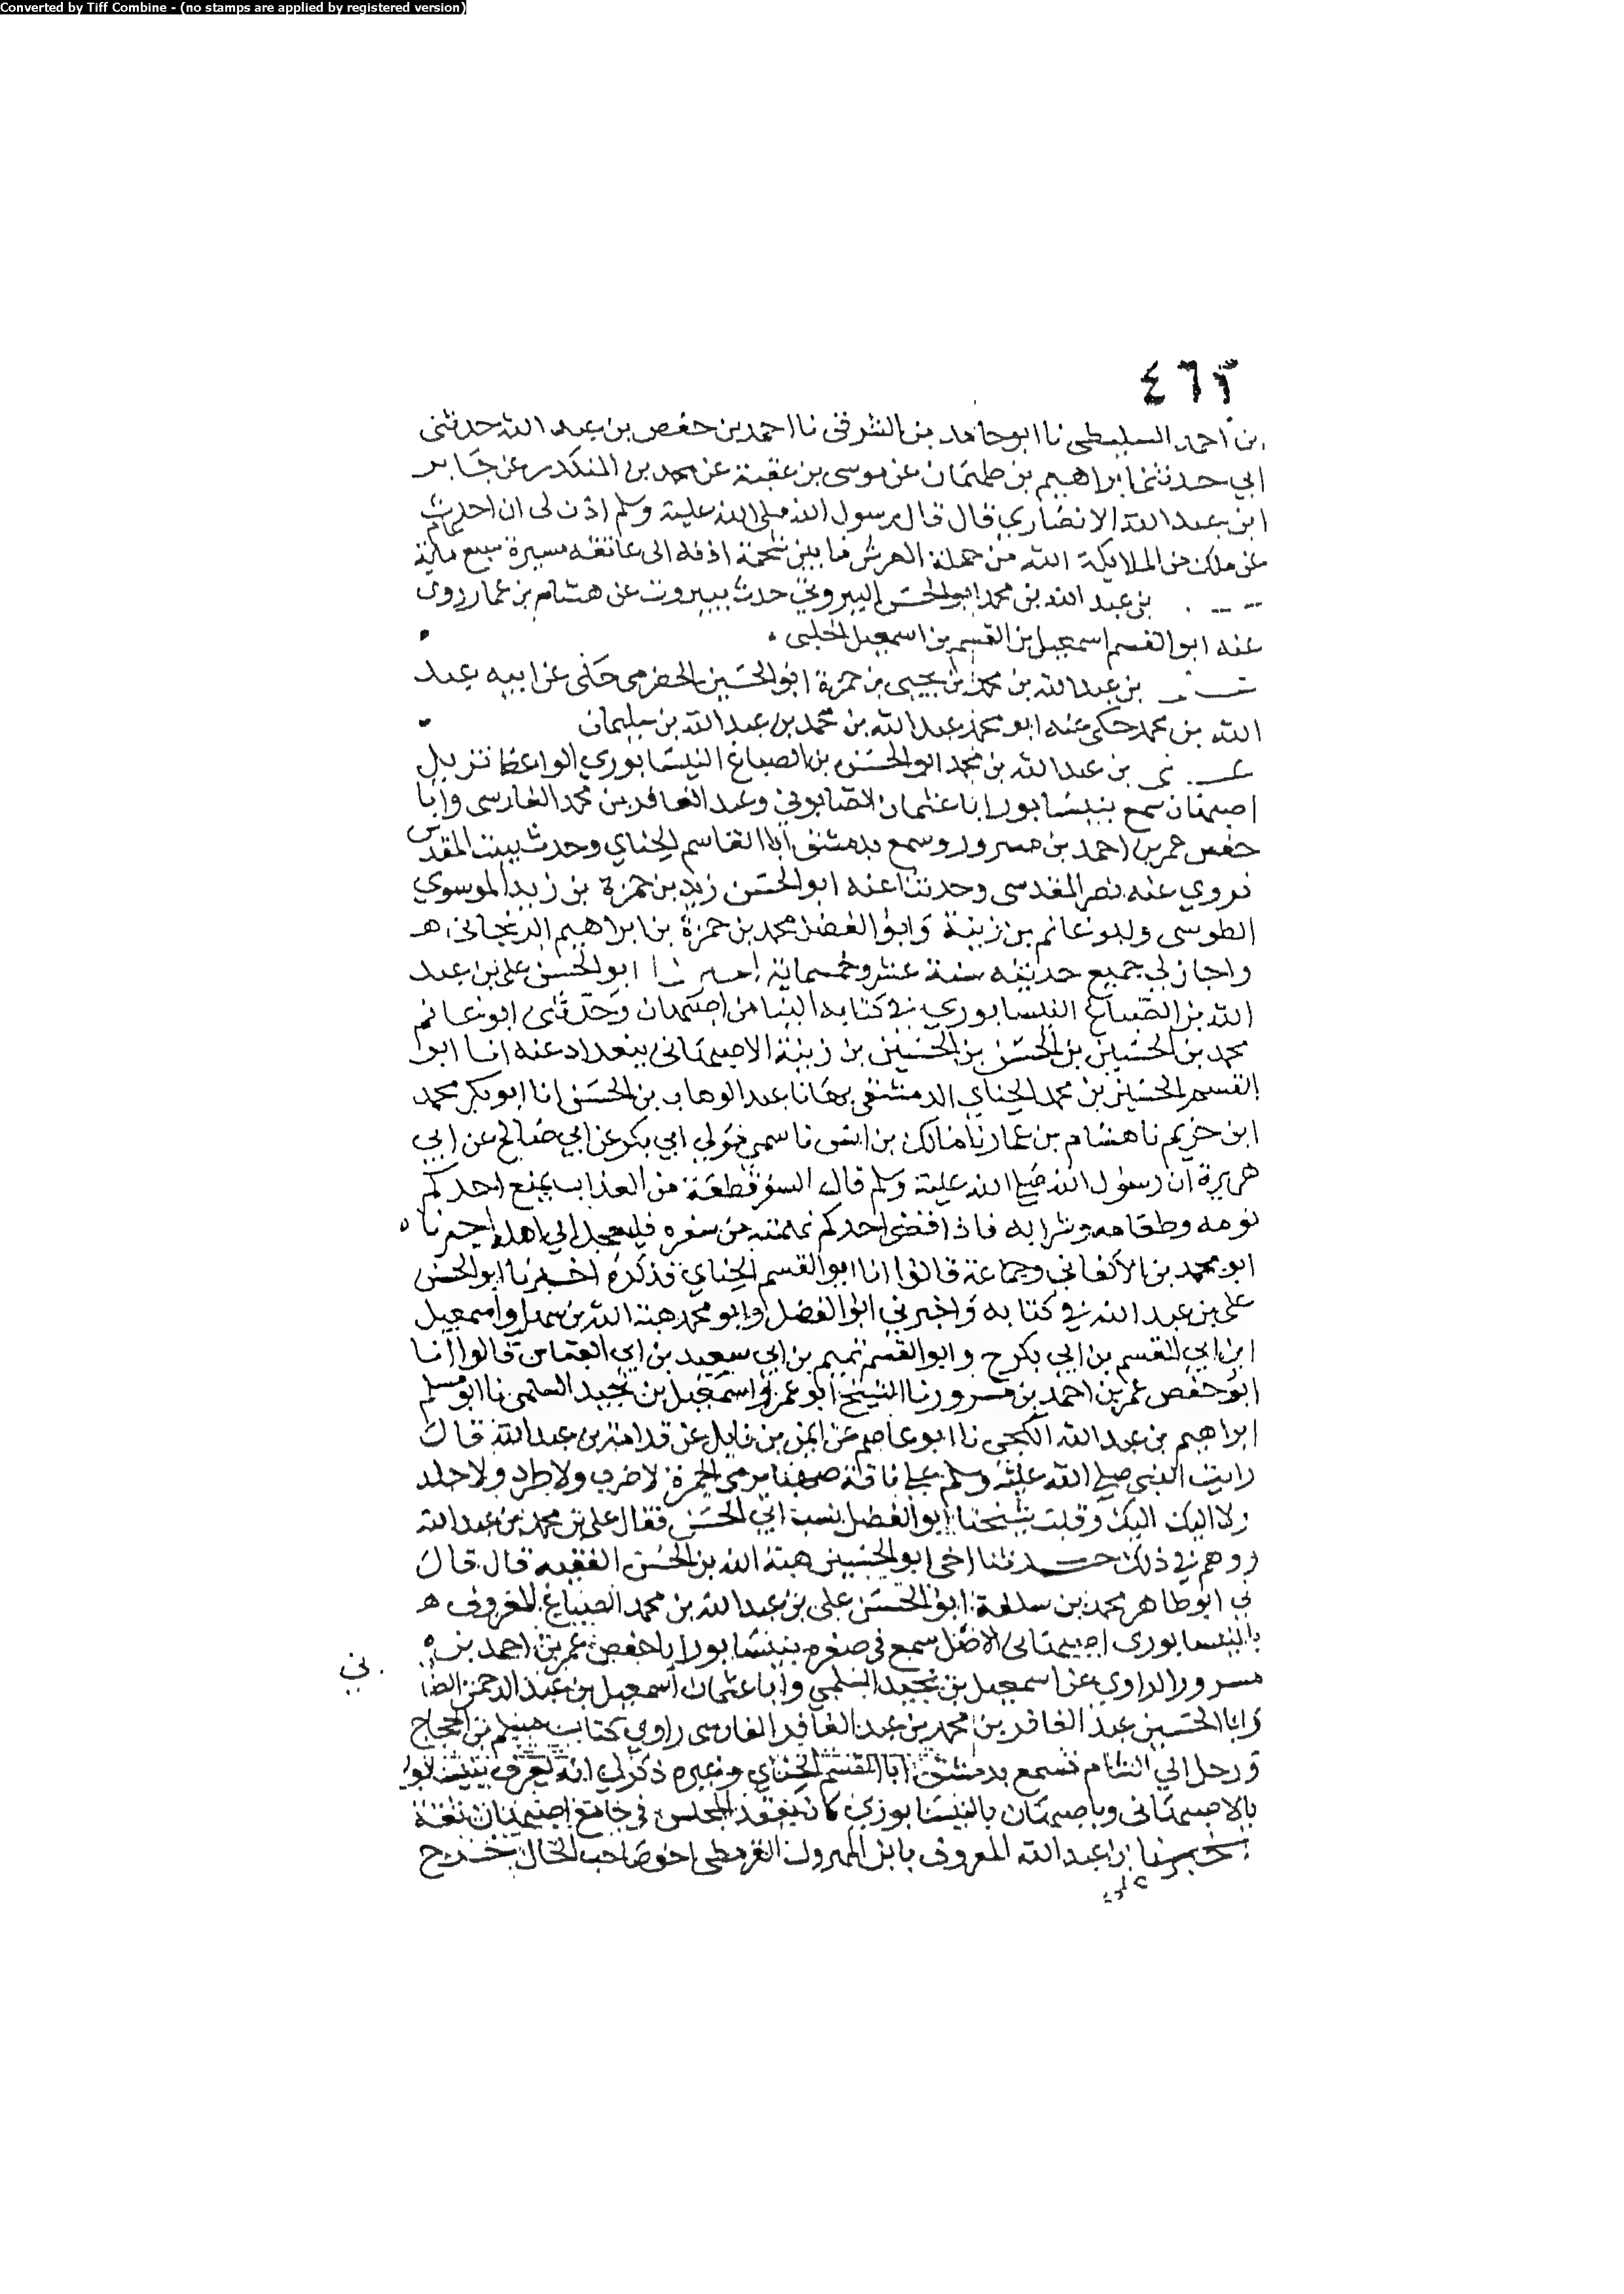 Converted by Tiff Combine - (no stamps are applied by registered version)
٤٦٣
بن احمد السليطي نا ابو حامد بن الشرقي نا احمد بن حفص بن عبد الله حدثني
ابي حدثنا ابراهيم بن طهمان عن موسى بن عقبة عن محمد بن المنكدر عن جابر
ابن عبد الله الانصاري قال قال رسول الله صلى الله عليه وسلم اذن لي ان احدث
عن ملك من الملايكة الله من حملة العرش ما بين شحمة اذنه الى عاتقه مسيرة سبع ماية عام
بن عبد الله بن محمد ابو الحسن البيروتي حدث ببيروت عن هشام بن عمار روى
عنه ابو القسم اسمعيل بن القسم بن اسمعيل الحلبي
بن عبد الله بن محمد بن يحيى بن حمزة ابو الحسين الحضرمي حكى عن ابيه عبد
الله بن محمد حكى عنه ابو محمد عبد الله بن محمد بن عبد الله بن سليمان
بن عبد الله بن محمد ابو الحسن بن الصباغ النيسابوري الواعظ نزيل
اصبهان سمع بنيسابور ابا عثمان الصابوني وعبد الغافر بن محمد الفارسي وابا
حفص عمر بن احمد بن مسرور وسمع بدمشق ابا القاسم الحناي وحدث ببيت المقدس
فروي عنه نصر المقدسي وحدثنا عنه ابو الحسن زيد بن حمزة بن زيد الموسوي
الطوسي وابو غانم بن زينة وابو الفضل محمد بن حمزة بن ابراهيم الزنجاني ه
واجاز لي جميع حديثه سنة عشر وخمسماية اخبرنا ابو الحسن علي بن عبد
الله بن الصباغ النيسابوري في كتابه الينا من اصبهان وحدثني ابو غانم
محمد بن الحسين بن الحسن بن الحسين بن زينة الاصبهاني ببغداد عنه انا ابو
القسم الحسين بن محمد الحناي الدمشقي بها نا عبد الوهاب بن الحسن انا ابو بكر محمد
ابن خريم نا هشام بن عمار نا مالك بن انس نا سمي مولى ابي بكر عن ابي صالح عن ابي
هريرة ان رسول الله صلى الله عليه وسلم قال السفر قطعة من العذاب يمنع احدكم
نومه وطعامه وشرابه فاذا قضى احدكم نهمته من سفره فليعجل الي اهله اخبرنا ه
ابو محمد بن الاكفاني وجماعة قالوا انا ابو القسم الحناي فذكره اخبرنا ابو الحسن
علي بن عبد الله في كتابه واخبرني ابو الفضل وابو محمد هبة الله بن سهل واسمعيل
ابن ابي القسم بن ابي بكر ح وابو القسم تميم بن ابي سعيد بن ابي العباس قالوا انا
ابو حفص عمر بن احمد بن مسرور نا الشيخ ابو عمرو اسمعيل بن نجيد السلمي نا ابو مسلم
ابراهيم بن عبد الله الكجي نا ابو عاصم عن ايمن بن نابل عن قدامة بن عبد الله قال
رايت النبي صلى الله عليه وسلم على ناقة صهبا يرمي الجمرة لا ضرب ولا طرد ولا جلد
ولا اليك اليك وقلب شيخنا ابو الفضل نسب ابي الحسن فقال علي بن محمد بن عبد الله
ووهم في ذلك حدثنا اخي ابو الحسين هبة الله بن الحسن الفقيه قال قال
لي ابو طاهر محمد بن سلفة ابو الحسن علي بن عبد الله بن محمد الصباغ المعروف ه
بالنيسابوري اصبهاني الاصل سمع في صغره بنيسابور ابا حفص عمر بن احمد بن
مسرور الراوي عن اسمعيل بن نجيد السلمي وابا عثمان اسمعيل بن عبد الرحمن الصا
وابا الحسين عبد الغافر بن محمد بن عبد الغافر الفارسي راوي كتاب مسلم بن الحجاج
ورحل الي الشام فسمع بدمشق ابا القسم الحناي وغيره ذكر لي انه يعرف بنيسابور
بالاصبهاني وباصبهان بالنيسابوري كان يعقد المجلس في جامع اصبهان ثقة
بن عبد الله المعروف بابن المهرول القرمطي اخو صاحب الخال خرج